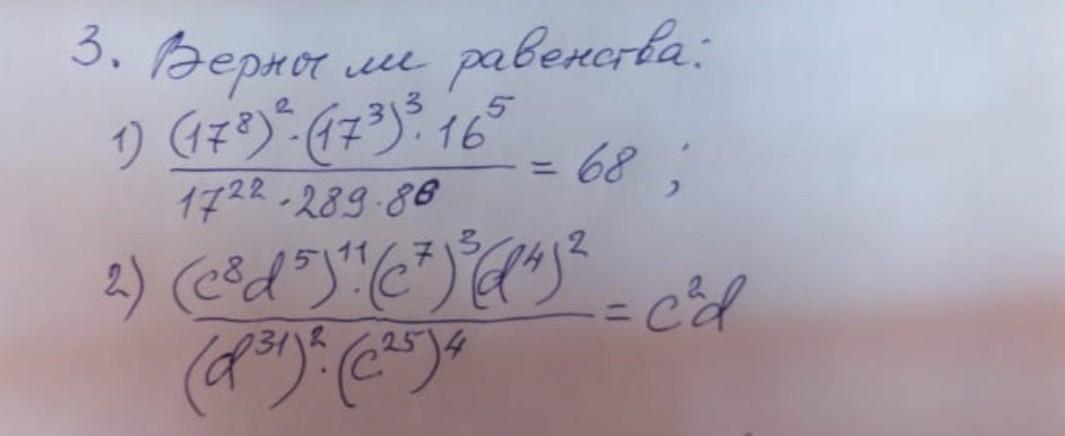 3. Верны ли равенства:
1) \frac{(17^8)^2 \cdot (17^3)^3 \cdot 16^5}{17^{22} \cdot 289 \cdot 8^6} = 68 ;
2) \frac{(c^8 d^5)^{11} \cdot (c^7)^3 (d^4)^2}{(d^{31})^2 \cdot (c^{25})^4} = c^2 d